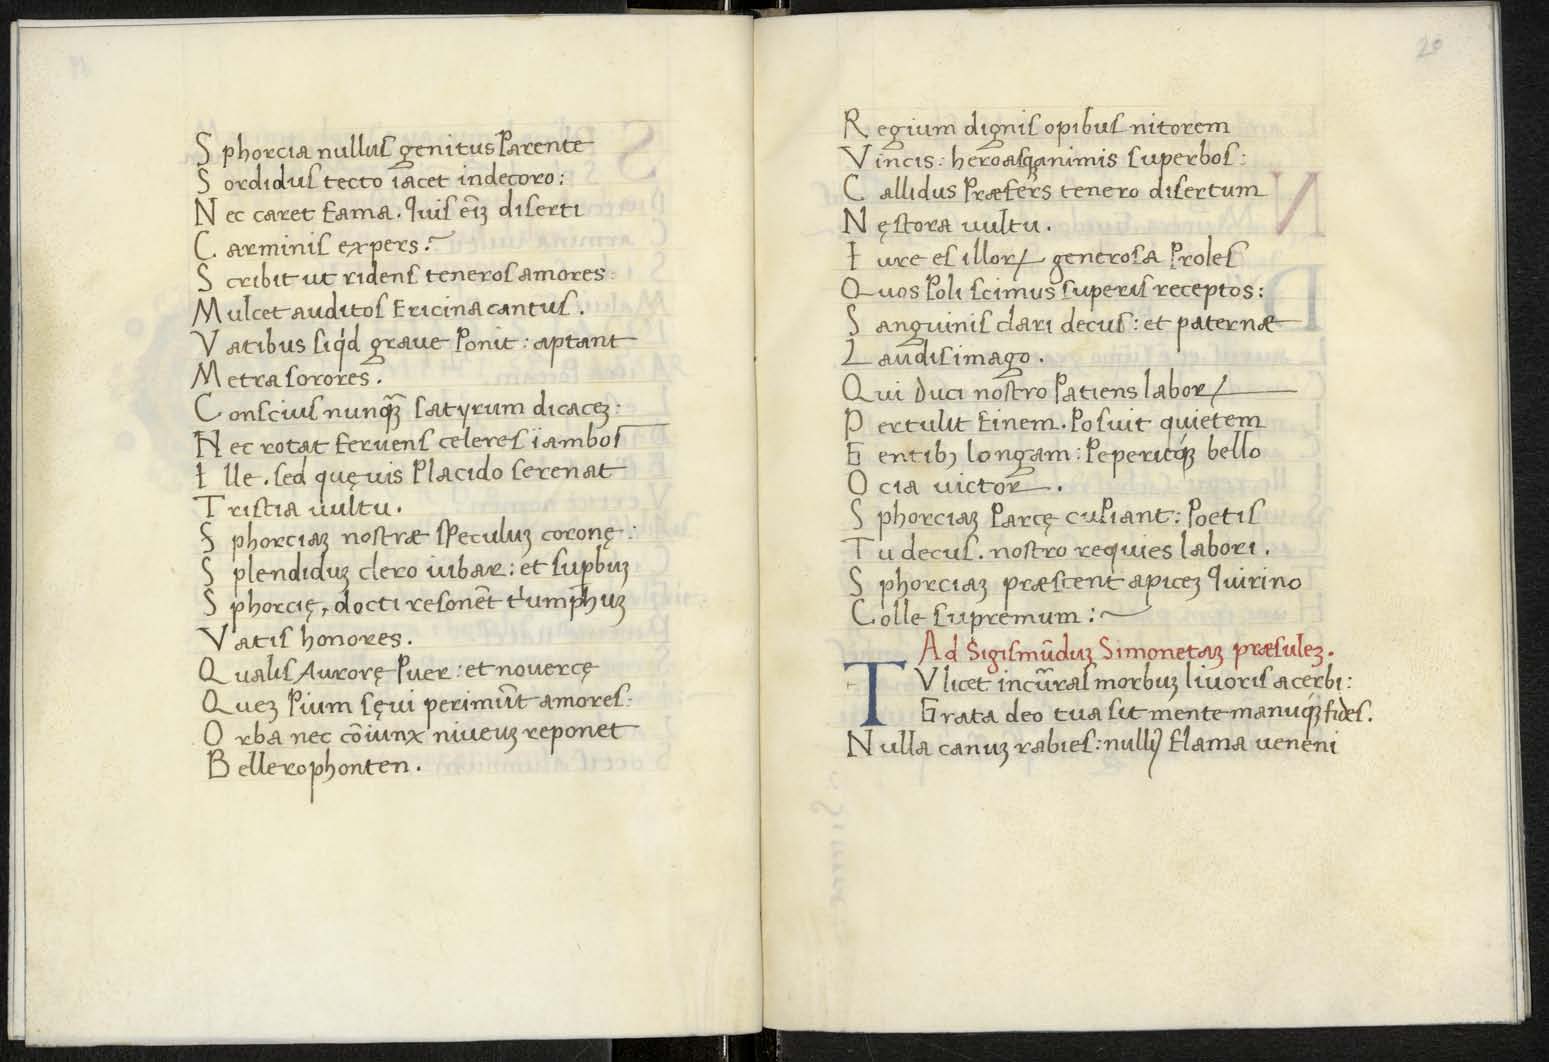 Sphorcia nulluſ genitus Parente
Sordiduſ tecto iacet indecoro:
Nec caret fama. Quiſ eīꝫ diſerti
Carminiſ expers:
Scribit ut ridenſ teneroſ amores:
Mulcet auditoſ Ericina cantuſ.
Vatibus ſiq́d graue Ponit: aptant
Metra ſorores.
Conſciuſ nunq̄ꝫ ſatyrum dicaceꝫ:
Nec rotat feruenſ celereſ ïamboſ
Ille. ſed quęuis Placido ſerenat
Triſtia uultu.
Sphorciaꝫ noſtræ ſPeculuꝫ coronę:
Splendiduꝫ clero iubar: et ſuꝑbuꝫ
Sphorcię, docti reſonēt tⁱumphuꝫ
Vatiſ honores.
Qualiſ Aurorę Puer: et nouercę
Queꝫ Pium ſęui perimūt amoreſ:
Orba nec cōiunx niueuꝫ reponet
Bellerophonten.
20
Regium digniſ opibuſ nitorem
Vincis: heroaſq̨ animis ſuperboſ:
Callidus Præfers tenero diſertum
Nęſtora uultu.
Iure eſ illoꝝ generoſa Proleſ
Quos Poli ſcimus ſuperiſ receptos:
Sanguiniſ clari decuſ: et paternæ
Laudiſ imago.
Qui Duci noſtro Patienſ laboꝝ
Pertulit finem. Poſuit quietem
Gentibꝫ longam: Peperitq́ꝫ bello
Ocia uictor.
Sphorciaꝫ Parcę cuPiant: Poetiſ
Tu decuſ. noſtro requieſ labori.
Sphorciaꝫ præſtent apiceꝫ Quirino
Colle ſupremum:
Ad Sigiſmūduꝫ Simonetaꝫ præſuleꝫ.
TV licet incūraſ morbuꝫ liuoriſ acerbi:
Grata deo tua ſit mente manuq́ꝫ fideſ.
Nulla canuꝫ rabieſ: nulliꝰ flama ueneni